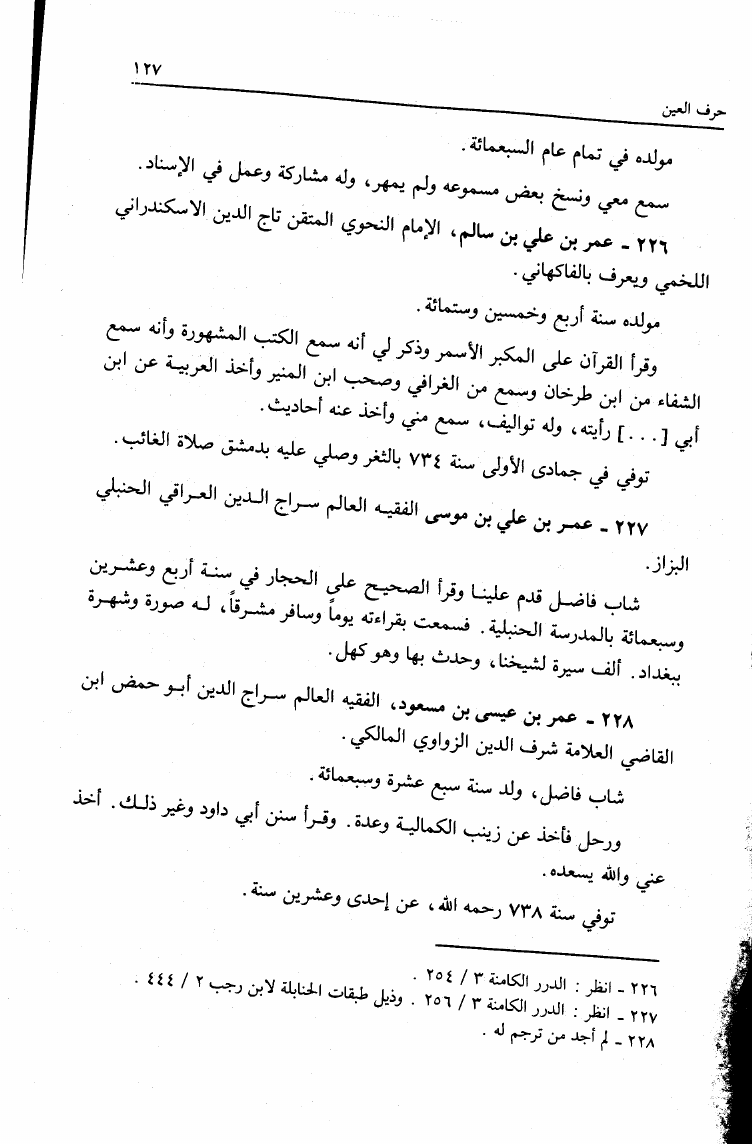 ١٢٧
حرف العين
مولده في تمام عام السبعمائة.
سمع معي ونسخ بعض مسموعه ولم يمهر، وله مشاركة وعمل في الإسناد.
٢٢٦ ـ عمر بن علي بن سالم، الإمام النحوي المتقن تاج الدين الاسكندراني
اللخمي ويعرف بالفاكهاني.
مولده سنة أربع وخمسين وستمائة.
وقرأ القرآن على المكبر الأسمر وذكر لي أنه سمع الكتب المشهورة وأنه سمع
الشفاء من ابن طرخان وسمع من الغرافي وصحب ابن المنير وأخذ العربية عن ابن
أبي [...] رأيته، وله تواليف، سمع مني وأخذ عنه أحاديث.
توفي في جمادى الأولى سنة ٧٣٤ بالثغر وصلي عليه بدمشق صلاة الغائب.
٢٢٧ ـ عمر بن علي بن موسى الفقيه العالم سراج الدين العراقي الحنبلي
البزاز.
شاب فاضل قدم علينا وقرأ الصحيح على الحجار في سنة أربع وعشرين
وسبعمائة بالمدرسة الحنبلية. فسمعت بقراءته يوماً وسافر مشرقاً، له صورة وشهرة
ببغداد. ألف سيرة لشيخنا، وحدث بها وهو كهل.
٢٢٨ ـ عمر بن عيسى بن مسعود، الفقيه العالم سراج الدين أبو حمض ابن
القاضي العلامة شرف الدين الزواوي المالكي.
شاب فاضل، ولد سنة سبع عشرة وسبعمائة.
ورحل فأخذ عن زينب الكمالية وعدة. وقرأ سنن أبي داود وغير ذلك. أخذ
عني والله يسعده.
توفي سنة ٧٣٨ رحمه الله، عن إحدى وعشرين سنة.
٢٢٦ ـ انظر : الدرر الكامنة ٣ / ٢٥٤ .
٢٢٧ ـ انظر : الدرر الكامنة ٣ / ٢٥٦ . وذيل طبقات الحنابلة لابن رجب ٢ / ٤٤٤ .
٢٢٨ ـ لم أجد من ترجم له .